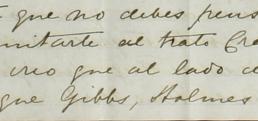 que no debes pens
mitarte al trato Cre
creo que al lado d
que Gibbs, Holmes